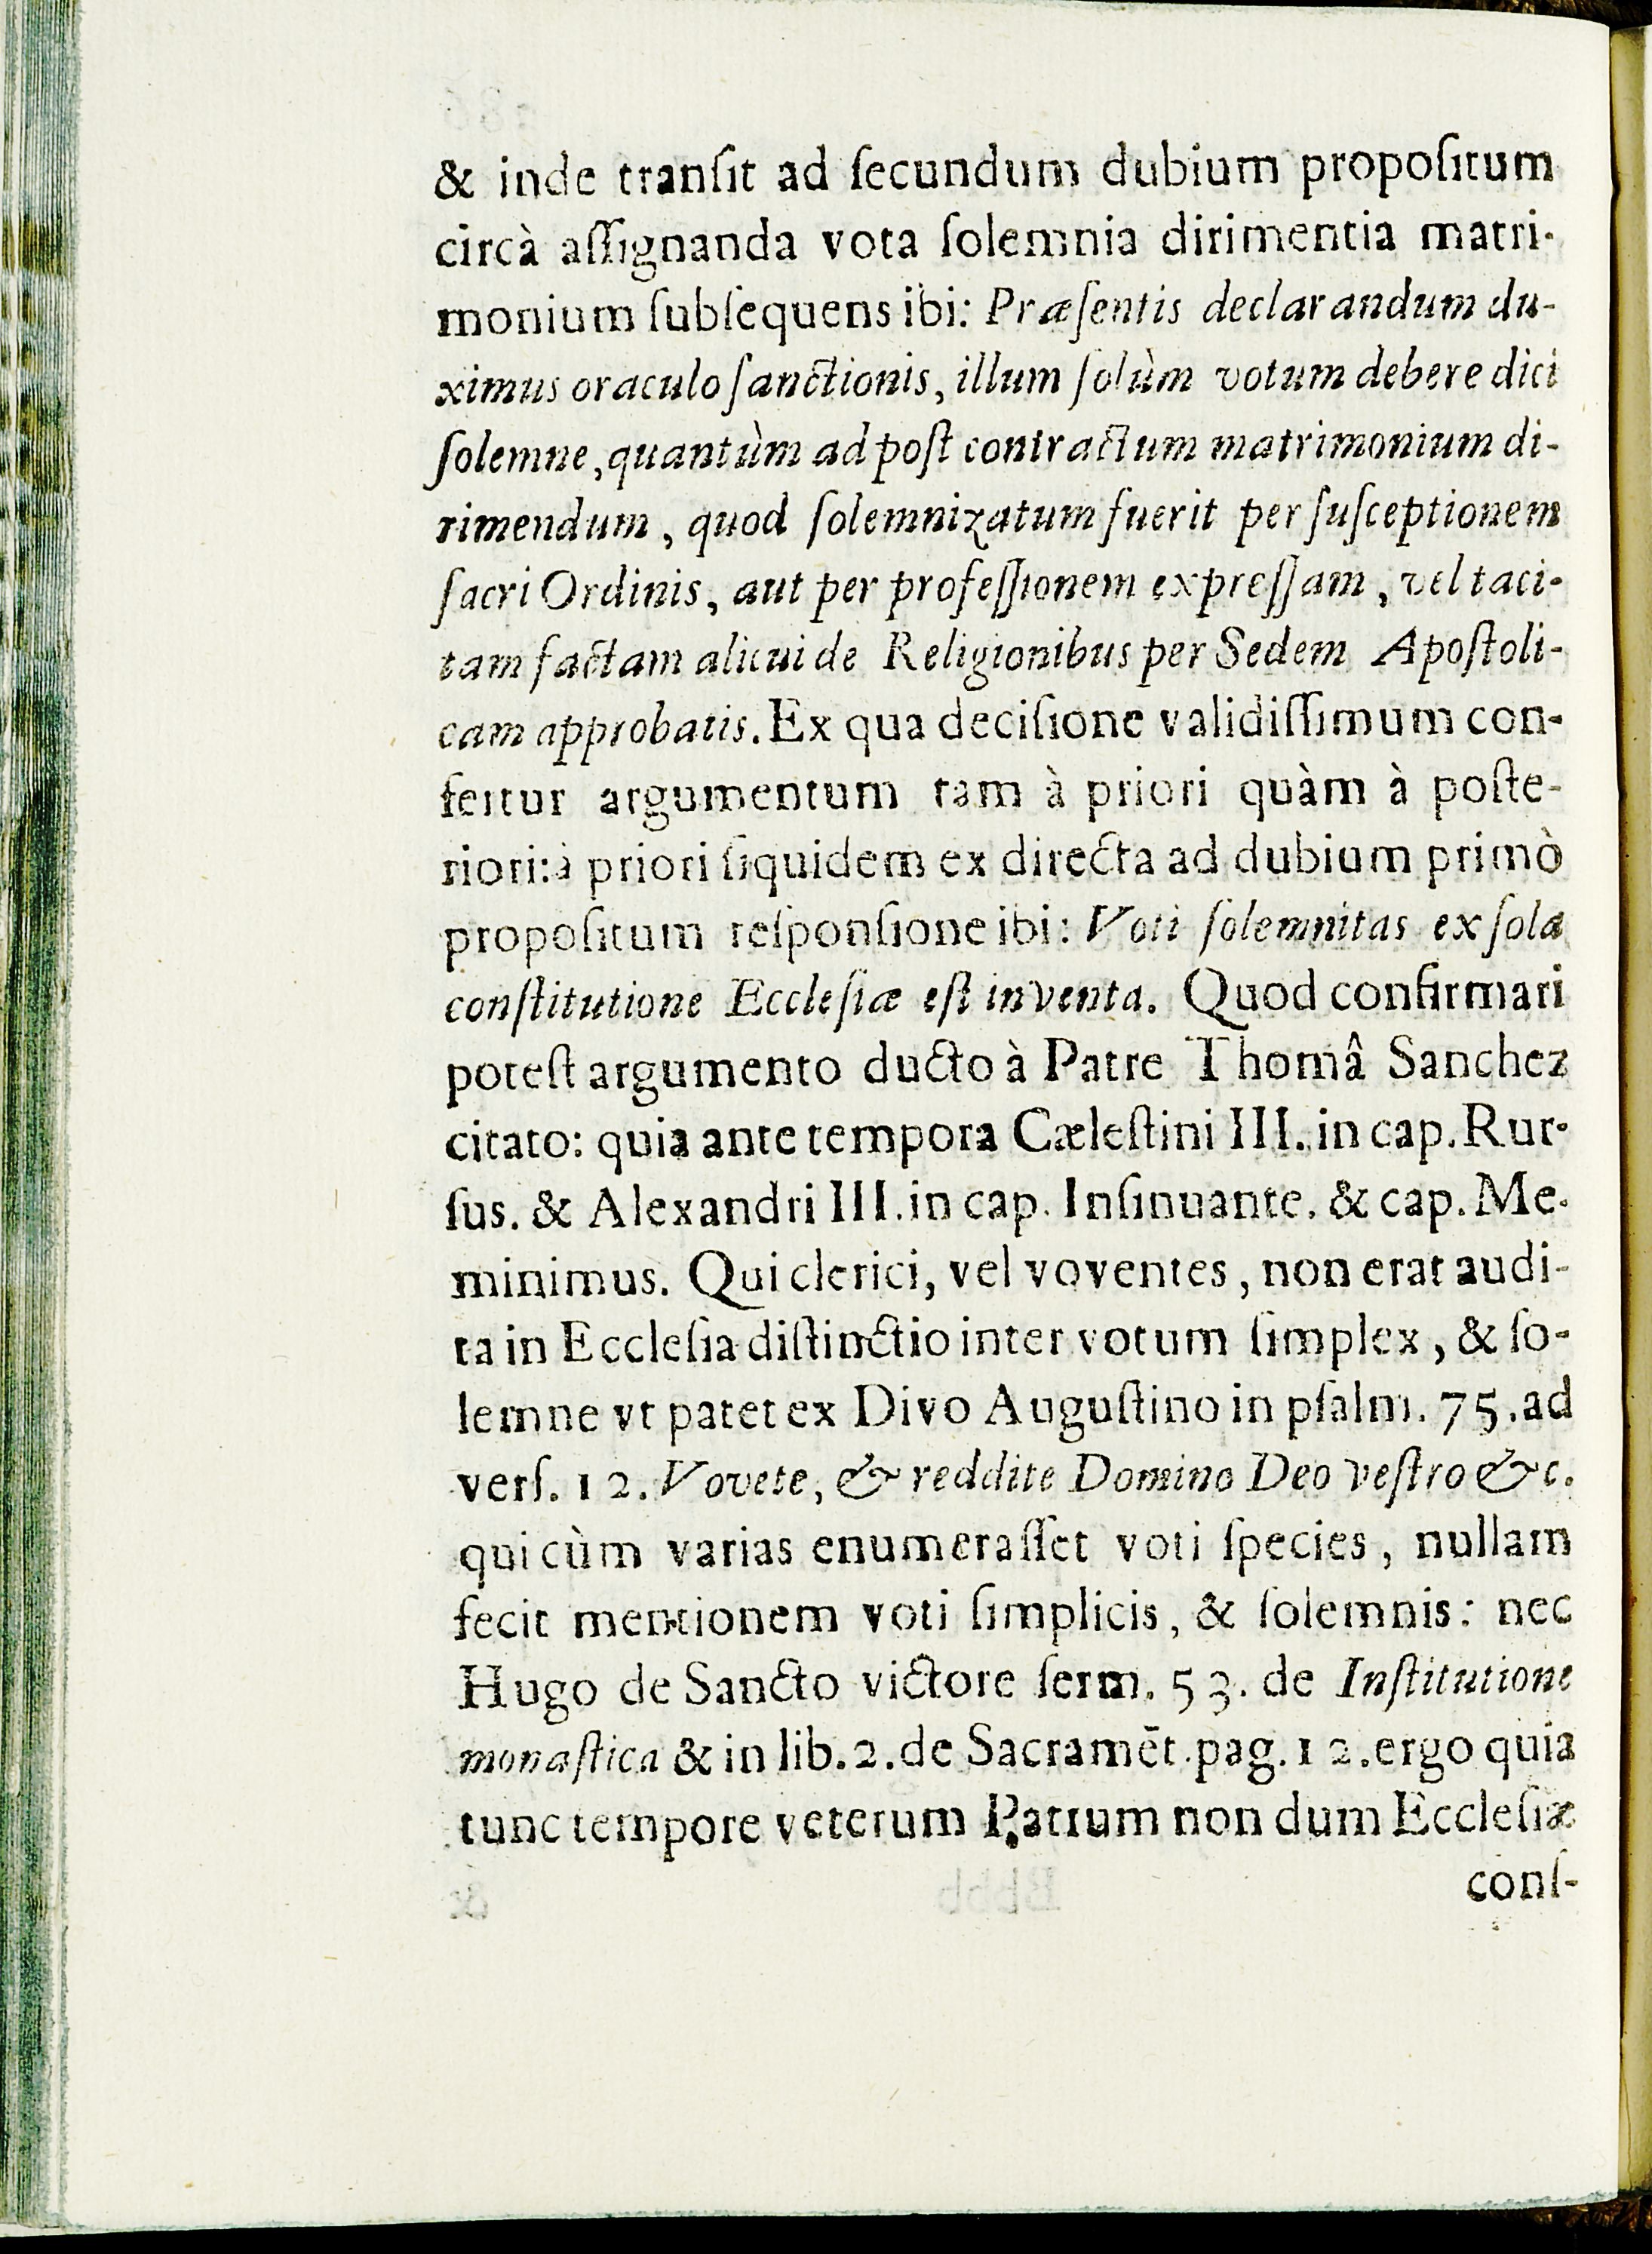 & inde tranſit ad ſecundum dubium propoſitum
circà aſſignanda vota ſolemnia dirimentia matri-
monium ſubſequens ibi: Præſentis declarandum du-
ximus oraculo ſanctionis, illum ſolùm votum debere dici
ſolemne, quantùm ad poſt contractum matrimonium di-
rimendum, quod ſolemnizatum fuerit per ſuſceptionem
ſacri Ordinis, aut per profeſſionem expreſſam, vel taci-
tam factam alicui de Religionibus per Sedem Apoſtoli-
cam approbatis. Ex qua deciſione validiſſimum con-
fertur argumentum tam à priori quàm à poſte-
riori: à priori ſiquidem ex directa ad dubium primò
propoſitum reſponſione ibi: Voti ſolemnitas ex ſola
conſtitutione Eccleſiæ eſt inventa. Quod confirmari
poteſt argumento ducto à Patre Thomâ Sanchez
citato: quia ante tempora Cæleſtini III. in cap. Rur-
ſus. & Alexandri III. in cap. Inſinuante. & cap. Me-
minimus. Qui clerici, vel voventes, non erat audi-
ta in Eccleſia diſtinctio inter votum ſimplex, & ſo-
lemne vt patet ex Divo Auguſtino in pſalm. 75. ad
verſ. 12. Vovete, & reddite Domino Deo veſtro &c.
qui cùm varias enumeraſſet voti ſpecies, nullam
fecit mentionem voti ſimplicis, & ſolemnis: nec
Hugo de Sancto victore ſerm. 53. de Inſtitutione
monaſtica & in lib. 2. de Sacramēt. pag. 12. ergo quia
tunc tempore veterum Patrum non dum Eccleſiæ
conſ-